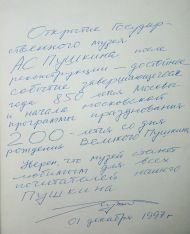 Открытие Государ-
ственного музея
А.С. Пушкина после
реконструкции – достойное
событие завершающегося
года 850-летия Москвы
и начала московской
программы празднования
200-летия со дня
рождения Великого Пушкина.
Уверен, что музей станет
любимым для всех
почитателей нашего
Пушкина
01 декабря 1997 г.